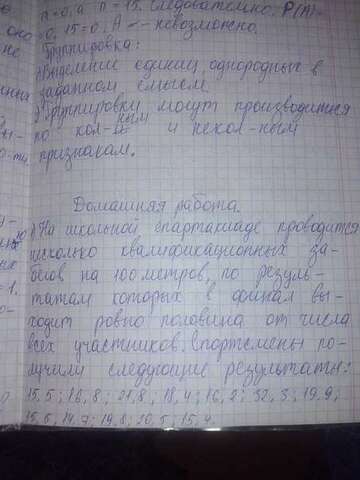 n=0, а n=15. Следовательно: P(A)=
=0, 15=0, A -- невозможно.
Группировка:
Выделение единиц, однородных в
заданном смысле
Группировки могут производиться
по кол-ным и некол-ным
признакам.
Домашняя работа.
На школьной спартакиаде проводится
несколько квалификационных за-
бегов на 100 метров, по резуль-
татам которых в финал вы-
ходит ровно половина от числа
всех участников. Спортсмены по-
лучили следующие результаты:
15,5; 16,8; 21,8; 18,4; 16,2; 32,3; 19,9;
15,6; 14,7; 19,8; 20,5; 15,4.